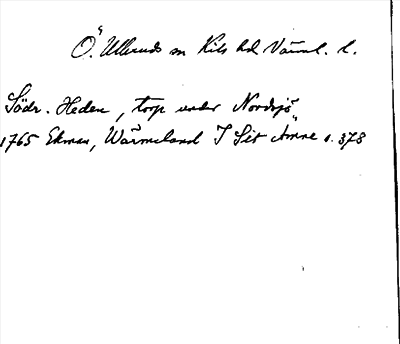 Ö. Ullerud sn Kils hd Värml. l.
Södr. Heden, torp under Nordsjö
1765 Ekman, Wärmeland I Sit Ämne s. 378